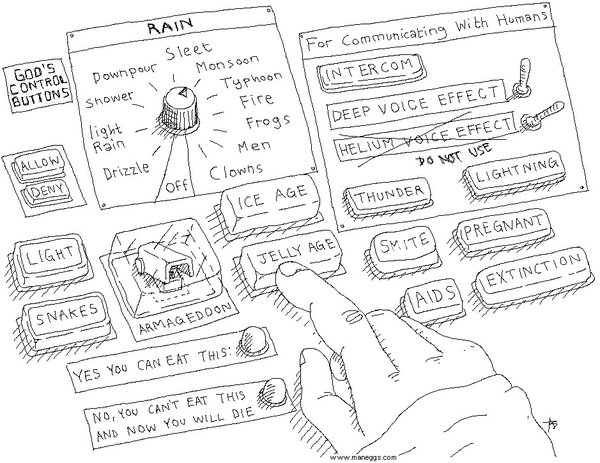 GOD'S
CONTROL
BUTTONS
RAIN
Sleet
Downpour
Monsoon
Shower
Typhoon
Fire
light
Rain
Frogs
Men
Drizzle
Clowns
Off
For Communicating With Humans
INTERCOM
DEEP VOICE EFFECT
HELIUM VOICE EFFECT
DO NOT USE
THUNDER
LIGHTNING
ALLOW
DENY
ICE AGE
LIGHT
JELLY AGE
SMITE
PREGNANT
SNAKES
ARMAGEDDON
AIDS
EXTINCTION
YES YOU CAN EAT THIS:
NO, YOU CAN'T EAT THIS
AND NOW YOU WILL DIE
www.maneggs.com